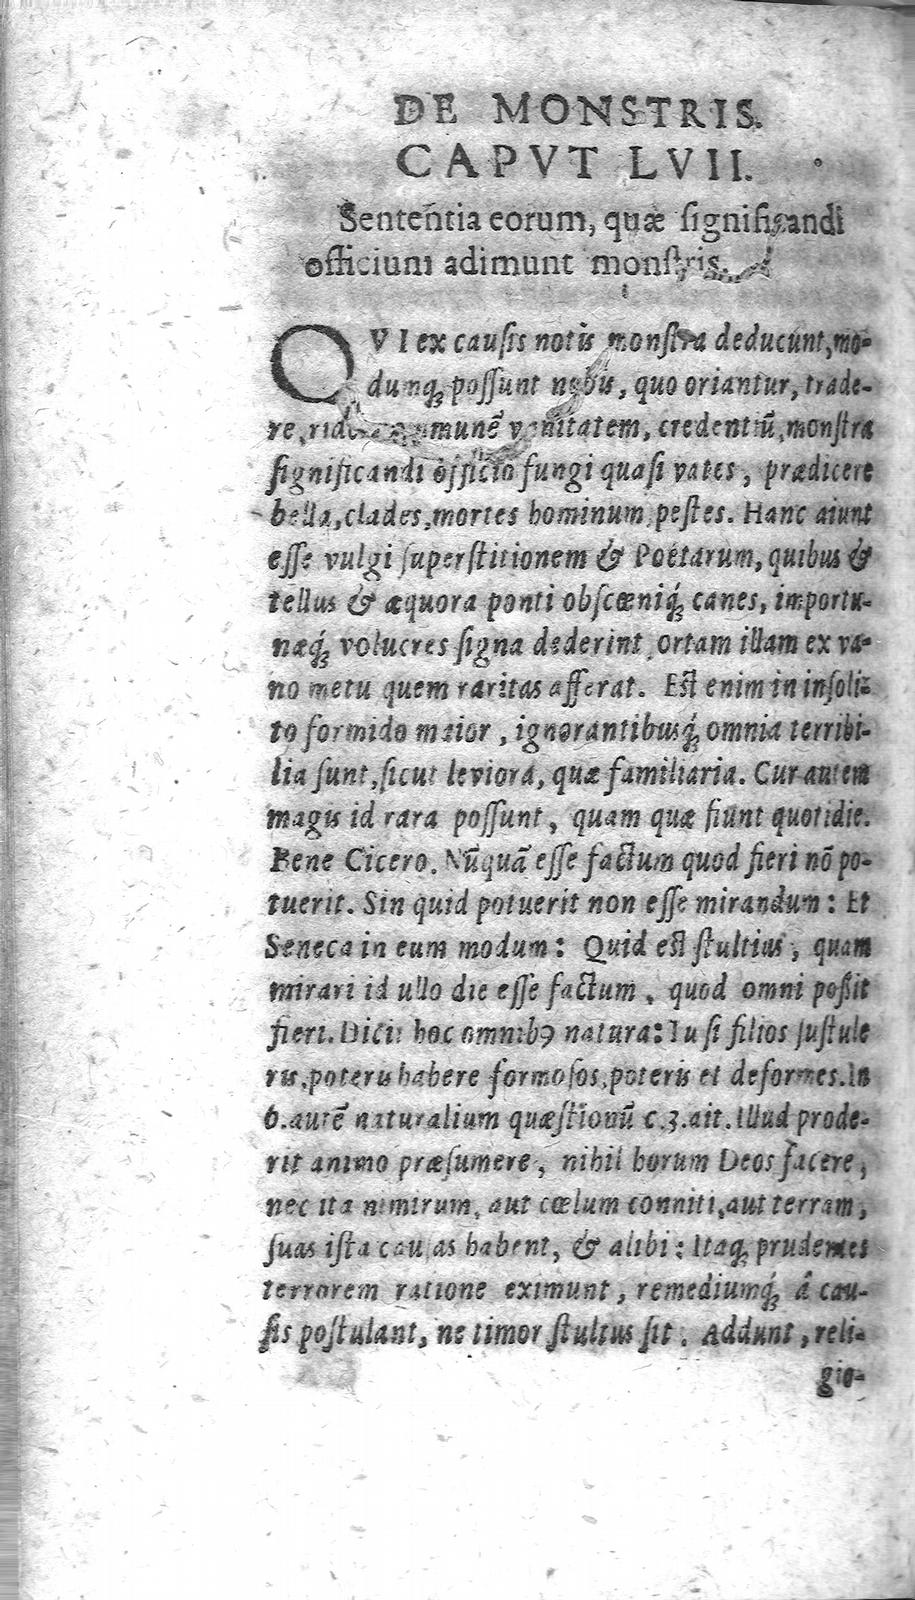 DE MONSTRIS.
CAPVT LVII.
Sententia eorum, quæ ſignificandi
officium adimunt monſtris.
QVI ex cauſis notis monſtra deducunt, mo-
dumq́; poſſunt nobis, quo oriantur, trade-
re, vanitatem, credentiũ, monſtra
ſignificandi officio fungi quaſi vates, prædicere
bella, clades, mortes hominum, peſtes. Hanc aiunt
eſſe vulgi ſuperſtitionem & Poëtarum, quibus &
tellus & æquora ponti obſcœniq́; canes, importu-
næq́; volucres ſigna dederint, ortam illam ex va-
no metu quem raritas afferat. Eſt enim in inſoli-
to formido maior, ignorantibusq́; omnia terribi-
lia ſunt, ſicut leviora, quæ familiaria. Cur autem
magis id rara poſſunt, quam quæ fiunt quotidie.
Bene Cicero. Nũquã eſſe factum quod fieri nõ po-
tuerit. Sin quid potuerit non eſſe mirandum: Et
Seneca in eum modum: Quid eſt ſtultius, quam
mirari id ullo die eſſe factum, quod omni poßit
fieri. Dicit hoc omnibꝰ natura: Tu ſi filios ſuſtule
ris, poteris habere formoſos, poteris et deformes. In
6. autẽ naturalium quæſtionũ c. 3. ait. Illud prode-
rit animo præſumere, nihil horum Deos facere,
nec ita nimirum, aut cœlum conniti, aut terram,
ſuas iſta cauſas habent, & alibi: Itaq; prudentes
terrorem ratione eximunt, remediumq́; â cau-
ſis poſtulant, ne timor ſtultus ſit. Addunt, reli-
gio-